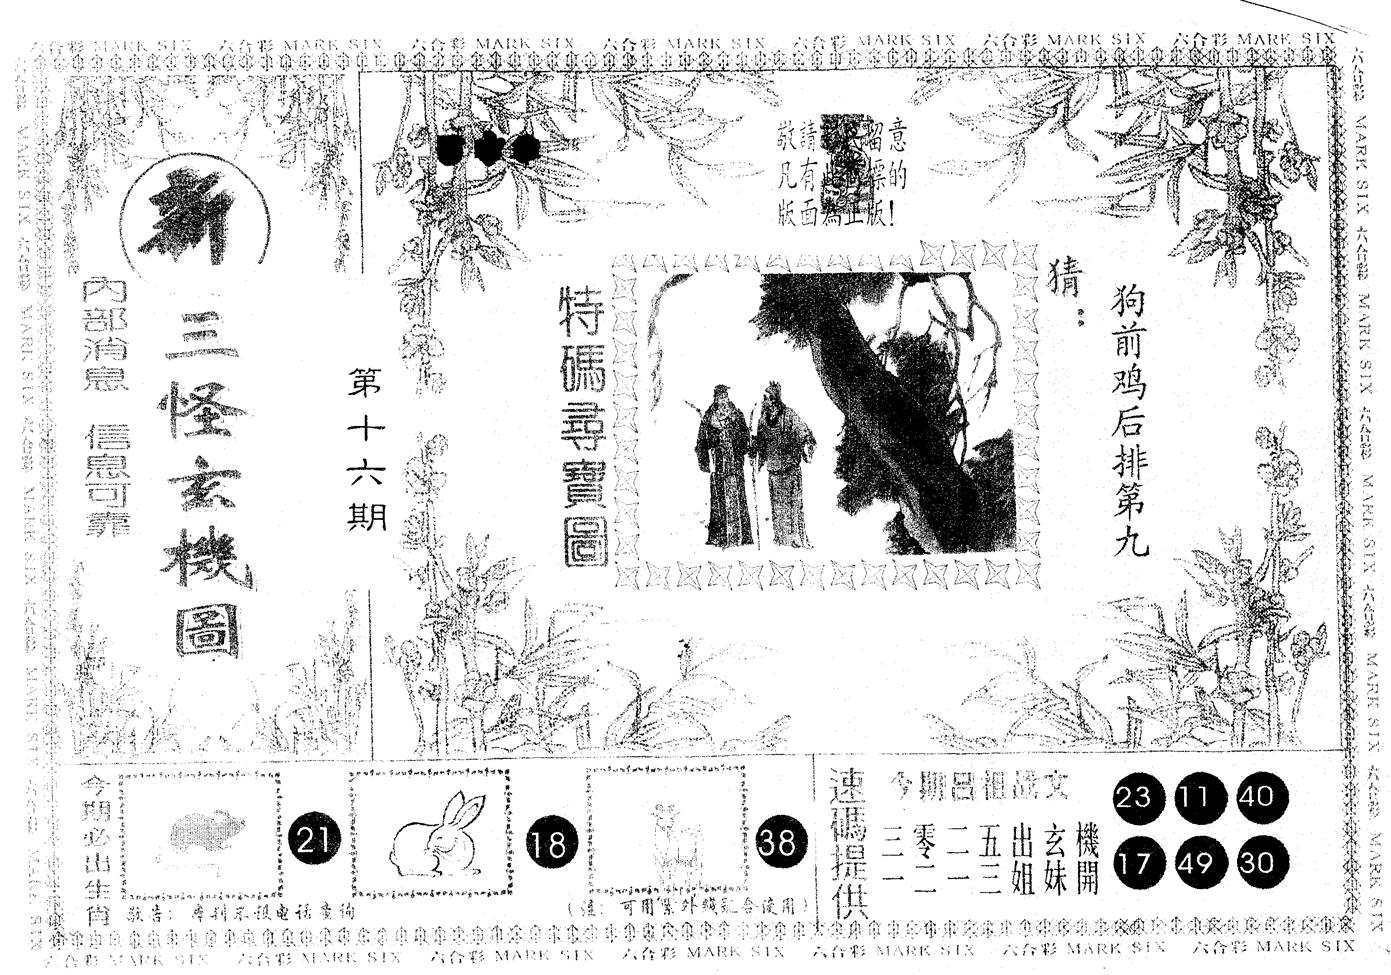 六合彩 MARK SIX 六合彩 MARK SIX 六合彩 MARK SIX 六合彩 MARK SIX 六合彩 MARK SIX 六合彩 MARK SIX 六合彩 MARK SIX
新
三怪玄機圖
內部消息 信息可靠
第十六期
敬請 留意
凡有此 標的
版面為正版!
特碼尋寶圖
猜:
狗前鸡后排第九
今期必出生肖
21
18
38
敬告:
(注: 可用紫外线配合使用)
速碼提供
今期呂祖 文
機開
玄妹
出姐
五三
二一
零二
三一
23 11 40
17 49 30
六合彩 MARK SIX 六合彩 MARK SIX 六合彩 MARK SIX 六合彩 MARK SIX 六合彩 MARK SIX 六合彩 MARK SIX 六合彩 MARK SIX